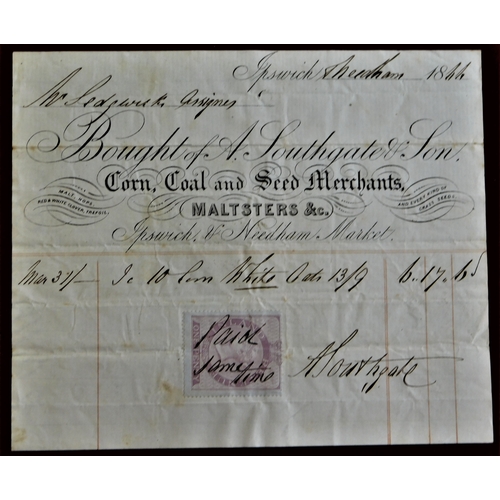 Ipswich & Needham 1866
Mr Sedgwick
Bought of A. Southgate & Son.
Corn, Coal and Seed Merchants,
MALT, HOPS,
RED & WHITE CLOVER, TREFOIL,
MALTSTERS &c.
AND EVERY KIND OF
GRASS SEEDS.
Ipswich, & Needham Market.
Mar 31/- To 10 Com White Oats 13/9 6.17.6
Paid
same
time
A Southgate